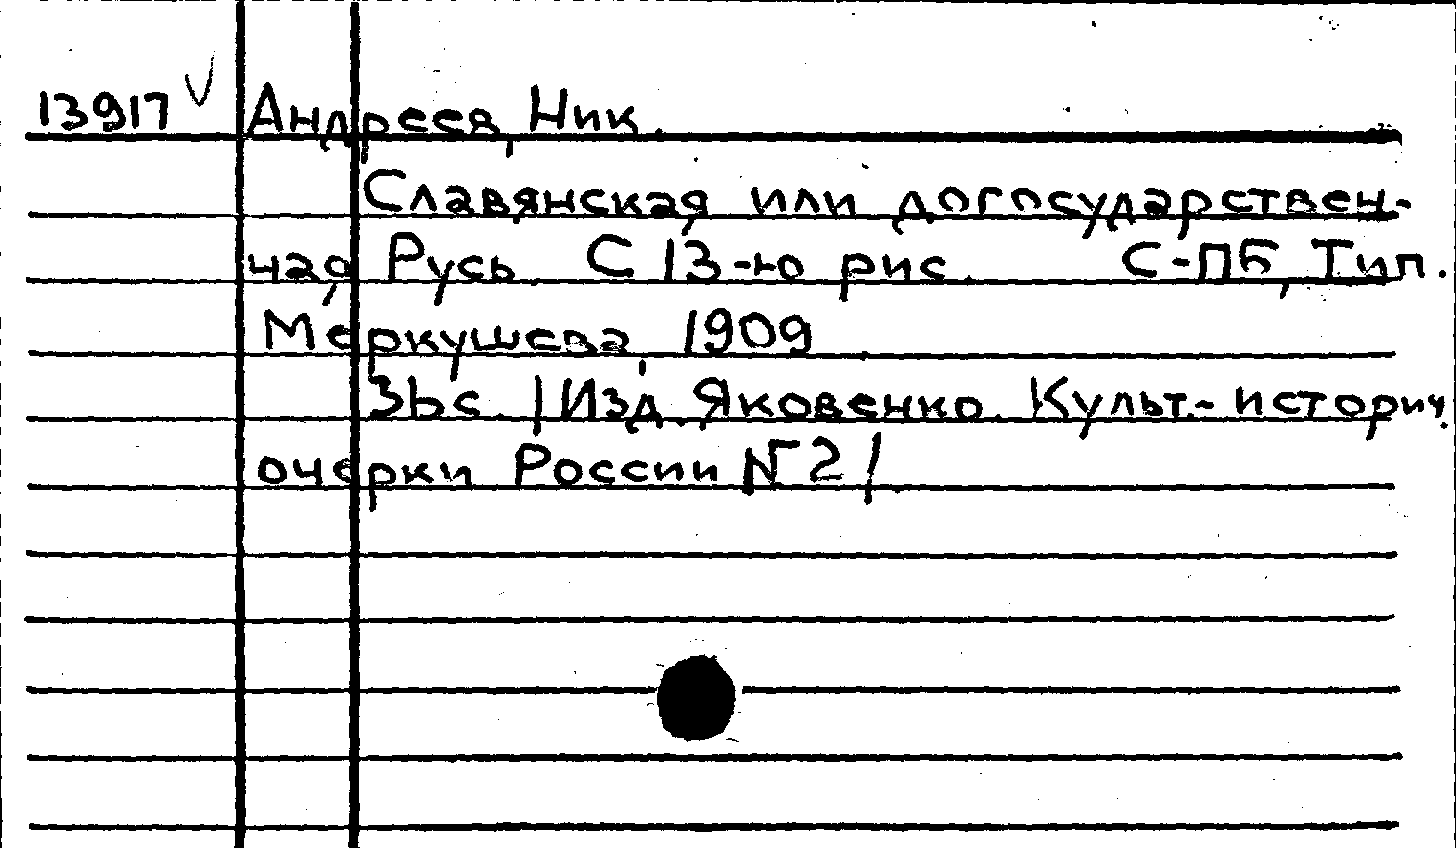 13917 Андреев, Ник.
Славянская или догосударствен-
ная Русь. С 13-ю рис. С-ПБ, Тип.
Меркушева, 1909
36с. /Изд. Яковенко. Культ.-историч.
очерки России № 2/